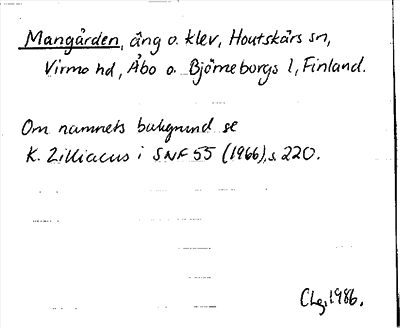 Mangården, äng o. klev, Houtskärs sn,
Virmo hd, Åbo o. Björneborgs l, Finland.
Om namnets bakgrund se
K. Zilliacus i SNF 55 (1966), s. 220.
CLg, 1986.